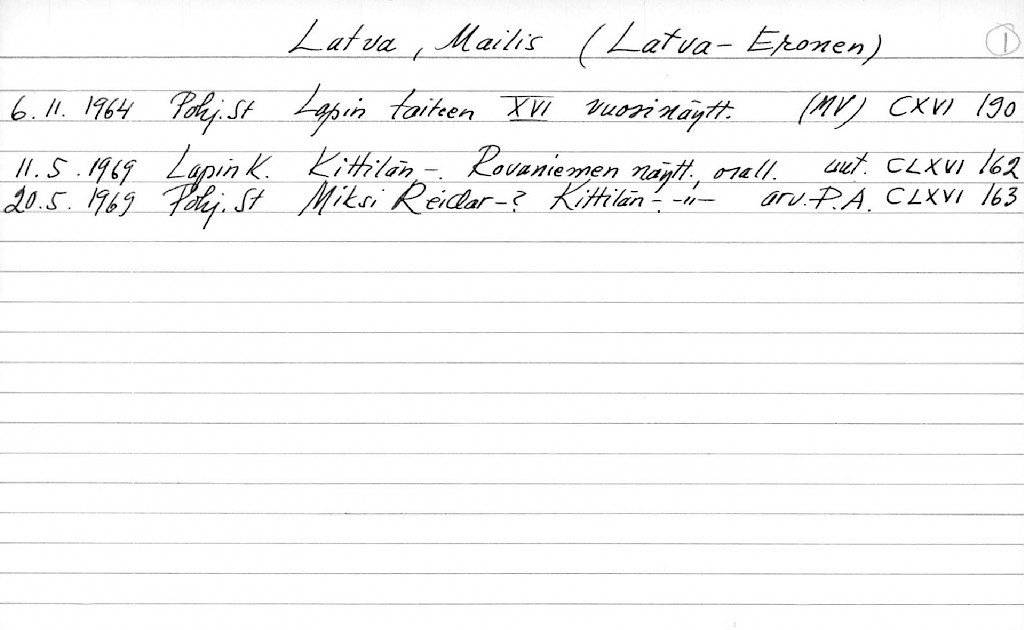 Latva, Mailis (Latva-Eronen) 1
6.11.1964 Pohj.St Lapin taiteen XVI vuosinäytt. (MV) CXVI 190
11.5.1969 Lapin K. Kittilän-. Rovaniemen näytt., osall. uut. CLXVI 162
20.5.1969 Pohj.St Miksi Reidar-? Kittilän- -"- arv. P.A. CLXVI 163